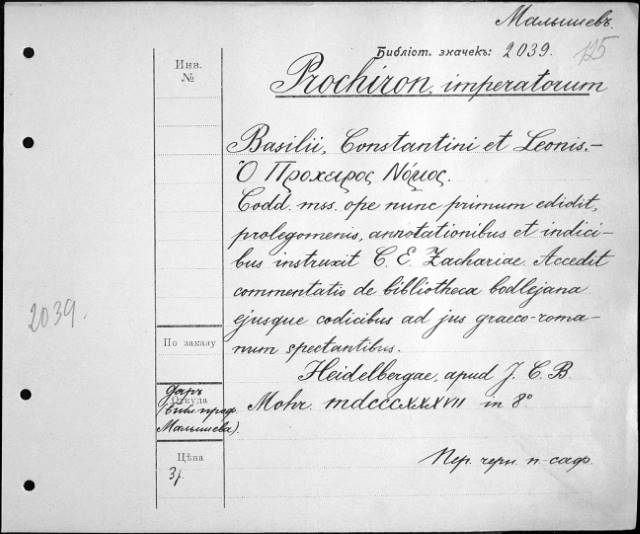 Малышевъ.
Библіот. значекъ: 2039. 125
Инв.
№
Prochiron, imperatorum
Basilii, Constantini et Leonis.–
Ὁ Προχειρος Νόμος.
Codd. mss. ope nunc primum edidit,
prolegomenis, annotationibus et indici-
bus instruxit C. E. Zachariae. Accedit
commentatio de bibliotheca bodlejana
ejusque codicibus ad jus graeco-roma-
num spectantibus.
2039.
По заказу
Heidelbergae, apud J. C. B.
Mohr. mdcccxxxvii in 8°
даръ
Откуда
Малышева).
Цѣна
3р.
Пер. черн. п-саф.